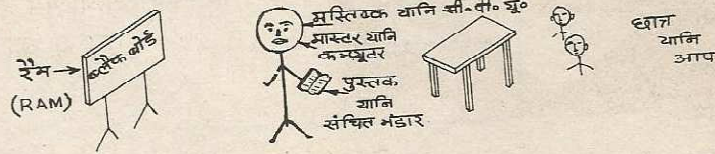 रैम
(RAM)
ब्लैक बोर्ड
मस्तिष्क यानि सी॰पी॰यू॰
मास्टर यानि
कम्प्यूटर
पुस्तक
यानि
संचित भंडार
छात्र
यानि
आप